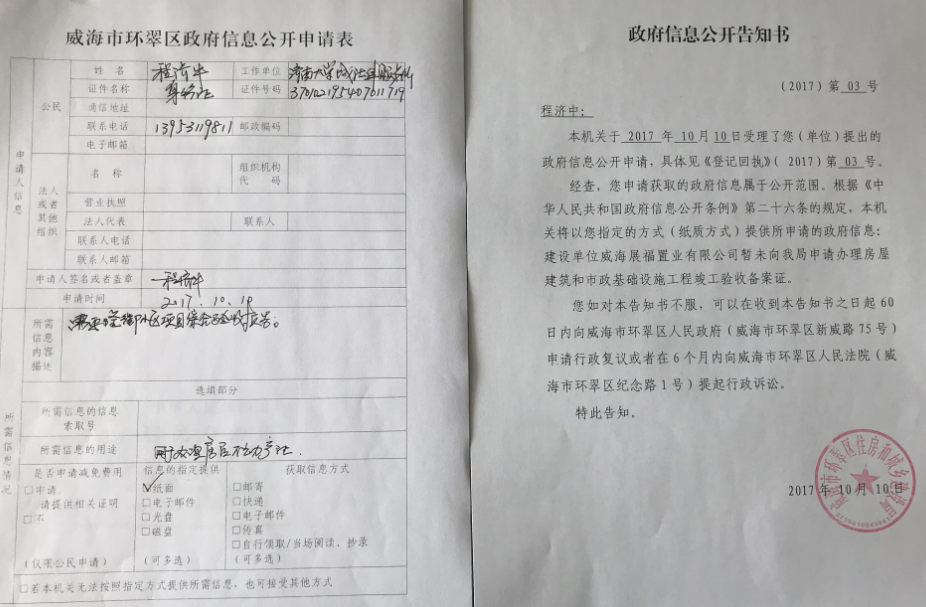 威海市环翠区政府信息公开申请表
申请人信息
公民
姓 名
程济中
工作单位
证件名称
身份证
证件号码
370102195407011919
通信地址
联系电话
13953119811
邮政编码
电子邮箱
法人或者其他组织
名 称
组织机构代 码
营业执照
法人代表
联系人
联系人电话
联系人邮箱
申请人签名或者盖章
程济中
申请时间
2017.10.10
所需信息情况
所需信息内容描述
选填部分
所需信息的信息索取号
所需信息的用途
用于办理房屋不动产证.
是否申请减免费用
□申请.
请提供相关证明
□不
(仅限公民申请)
信息的指定提供
☑纸面
□电子邮件
□光盘
□磁盘
(可多选)
获取信息方式
□邮寄
□快递
□电子邮件
□传真
□自行领取/当场阅读、抄录
(可多选)
□若本机关无法按照指定方式提供所需信息，也可接受其他方式
政府信息公开告知书
(2017) 第 03 号
程济中:
本机关于 2017 年 10 月 10 日受理了您(单位)提出的
政府信息公开申请，具体见《登记回执》( 2017) 第 03 号。
经查，您申请获取的政府信息属于公开范围。根据《中
华人民共和国政府信息公开条例》第二十六条的规定，本机
关将以您指定的方式(纸质方式)提供所申请的政府信息:
建设单位威海展福置业有限公司暂未向我局申请办理房屋
建筑和市政基础设施工程竣工验收备案证。
您如对本告知书不服，可以在收到本告知书之日起 60
日内向威海市环翠区人民政府(威海市环翠区新威路 75 号)
申请行政复议或者在 6 个月内向威海市环翠区人民法院(威
海市环翠区纪念路 1 号)提起行政诉讼。
特此告知。
威海市环翠区住房和城乡建设局
2017 年 10 月 10 日